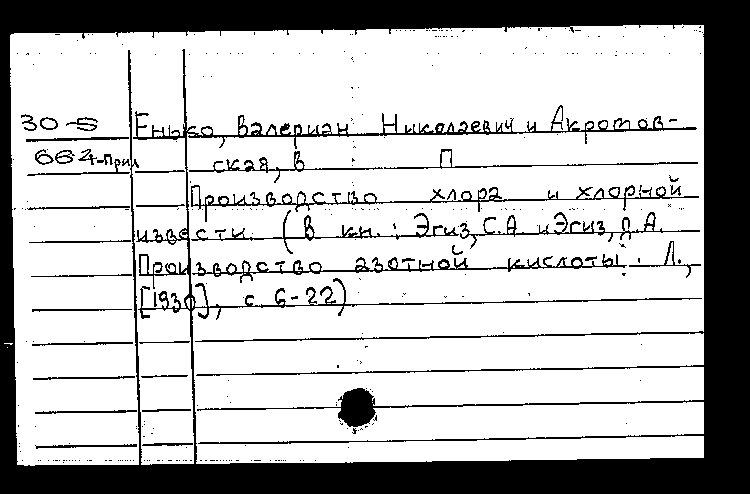 30-5 Енько, Валериан Николаевич и Акротов-
664-Прил ская, В П
Производство хлора и хлорной
извести. (В кн.: Эгиз, С.А. и Эгиз, Д.А.
Производство азотной кислоты. Л.,
[1930], с. 6-22)